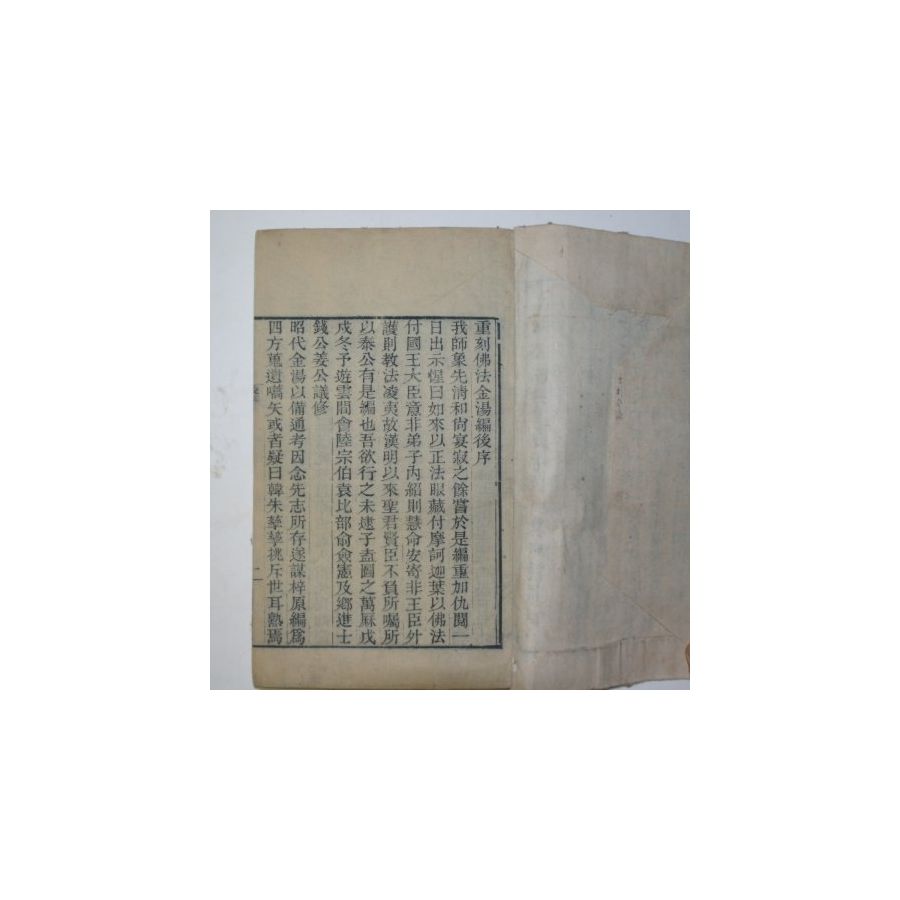 重刻佛法金湯編後序
我師象先清和尚宴寂之餘嘗於是編重加仇閱一
日出示惺曰如來以正法眼藏付摩訶迦葉以佛法
付國王大臣意非弟子內紹則慧命安寄非王臣外
護則教法凌夷故漢明以來聖君賢臣不負所囑所
以泰公有是編也吾欲行之未逮子盍圖之萬曆戊
戌冬予遊雲間會陸宗伯袁比部俞僉憲及鄉進士
錢公姜公議修
昭代金湯以備通考因念先志所存遂謀梓原編為
四方蒐遺嚆矢或者疑曰韓朱拳拳挑斥世耳熟焉
二